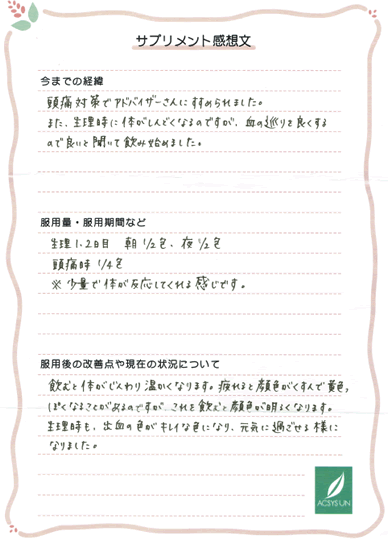 サプリメント感想文
今までの経緯
頭痛対策でアドバイザーさんにすすめられました。
また、生理時に体がしんどくなるのですが、血の巡りを良くする
ので良いと聞いて飲み始めました。
服用量・服用期間など
生理1、2日目 朝1/2包、夜1/2包
頭痛時 1/4包
※少量で体が反応してくれる感じです。
服用後の改善点や現在の状況について
飲むと体がじんわり温かくなります。疲れると顔色がくすんで黄色っ
ぽくなることがあるのですが、これを飲むと顔色が明るくなります。
生理時も、出血の色がキレイな色になり、元気に過ごせる様に
なりました。
ACSYS UN